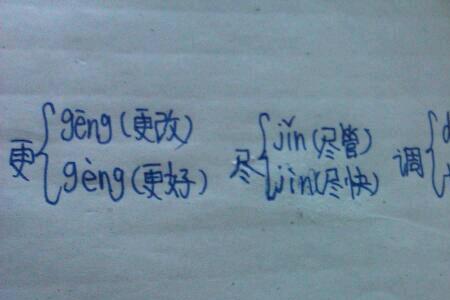 更
gēng(更改)
gèng(更好)
尽
jǐn(尽管)
jìn(尽快)
调